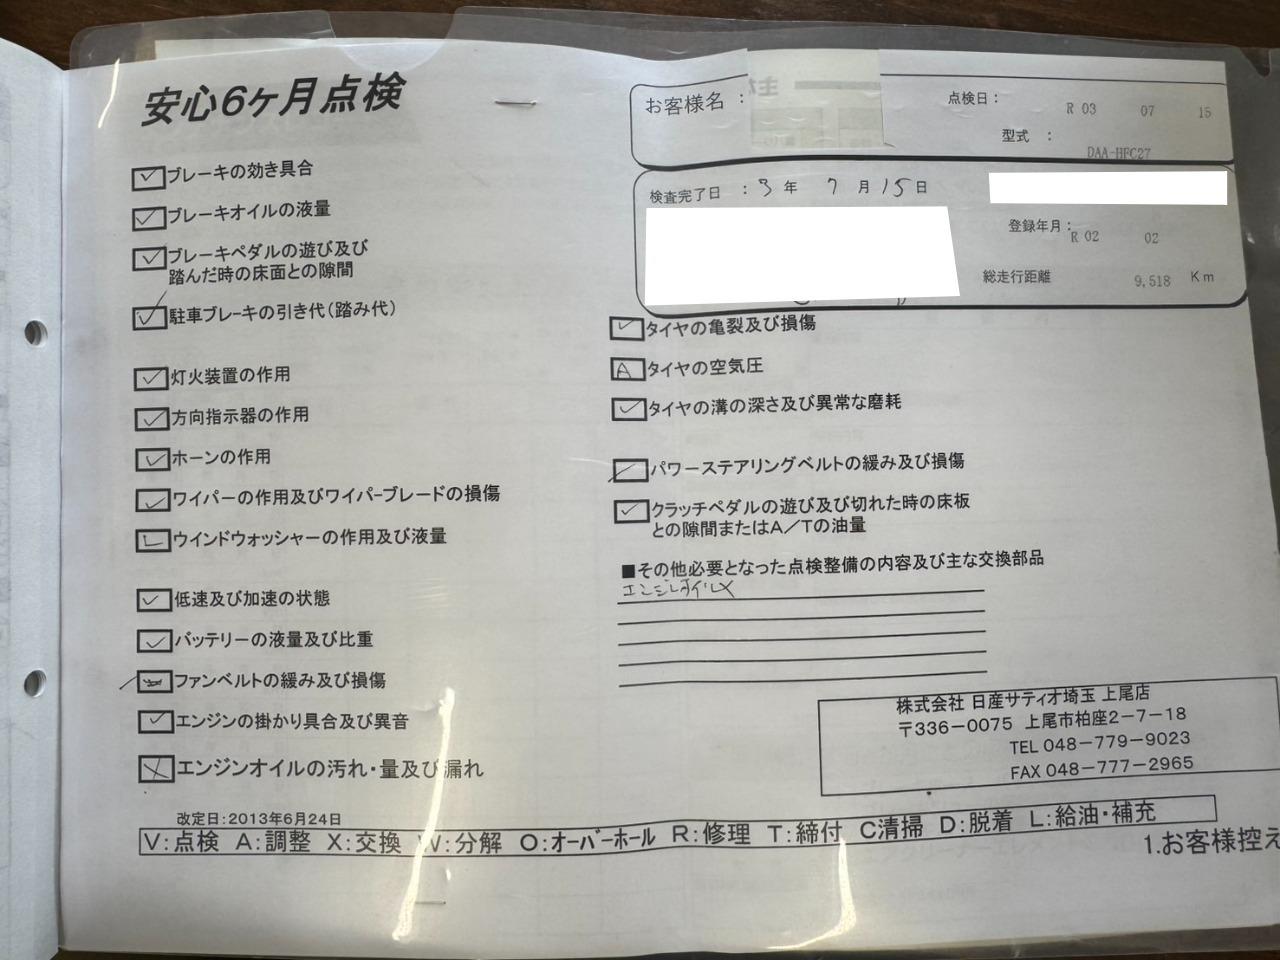 安心6ヶ月点検
お客様名 :
点検日: R 03 07 15
型式 : DAA-HFC27
検査完了日 : 3 年 7 月 15 日
登録年月: R 02 02
総走行距離 9,518 Km
✓ ブレーキの効き具合
✓ ブレーキオイルの液量
✓ ブレーキペダルの遊び及び
踏んだ時の床面との隙間
✓ 駐車ブレーキの引き代(踏み代)
✓ 灯火装置の作用
✓ 方向指示器の作用
✓ ホーンの作用
✓ ワイパーの作用及びワイパーブレードの損傷
L ウインドウォッシャーの作用及び液量
✓ 低速及び加速の状態
✓ バッテリーの液量及び比重
ファンベルトの緩み及び損傷
✓ エンジンの掛かり具合及び異音
X エンジンオイルの汚れ・量及び漏れ
✓ タイヤの亀裂及び損傷
A タイヤの空気圧
✓ タイヤの溝の深さ及び異常な磨耗
パワーステアリングベルトの緩み及び損傷
✓ クラッチペダルの遊び及び切れた時の床板
との隙間またはA/Tの油量
■その他必要となった点検整備の内容及び主な交換部品
エンジンオイルX
株式会社 日産サティオ埼玉 上尾店
〒336-0075 上尾市柏座2-7-18
TEL 048-779-9023
FAX 048-777-2965
改定日:2013年6月24日
V:点検 A:調整 X:交換 W:分解 O:オーバーホール R:修理 T:締付 C清掃 D:脱着 L:給油・補充
1.お客様控え